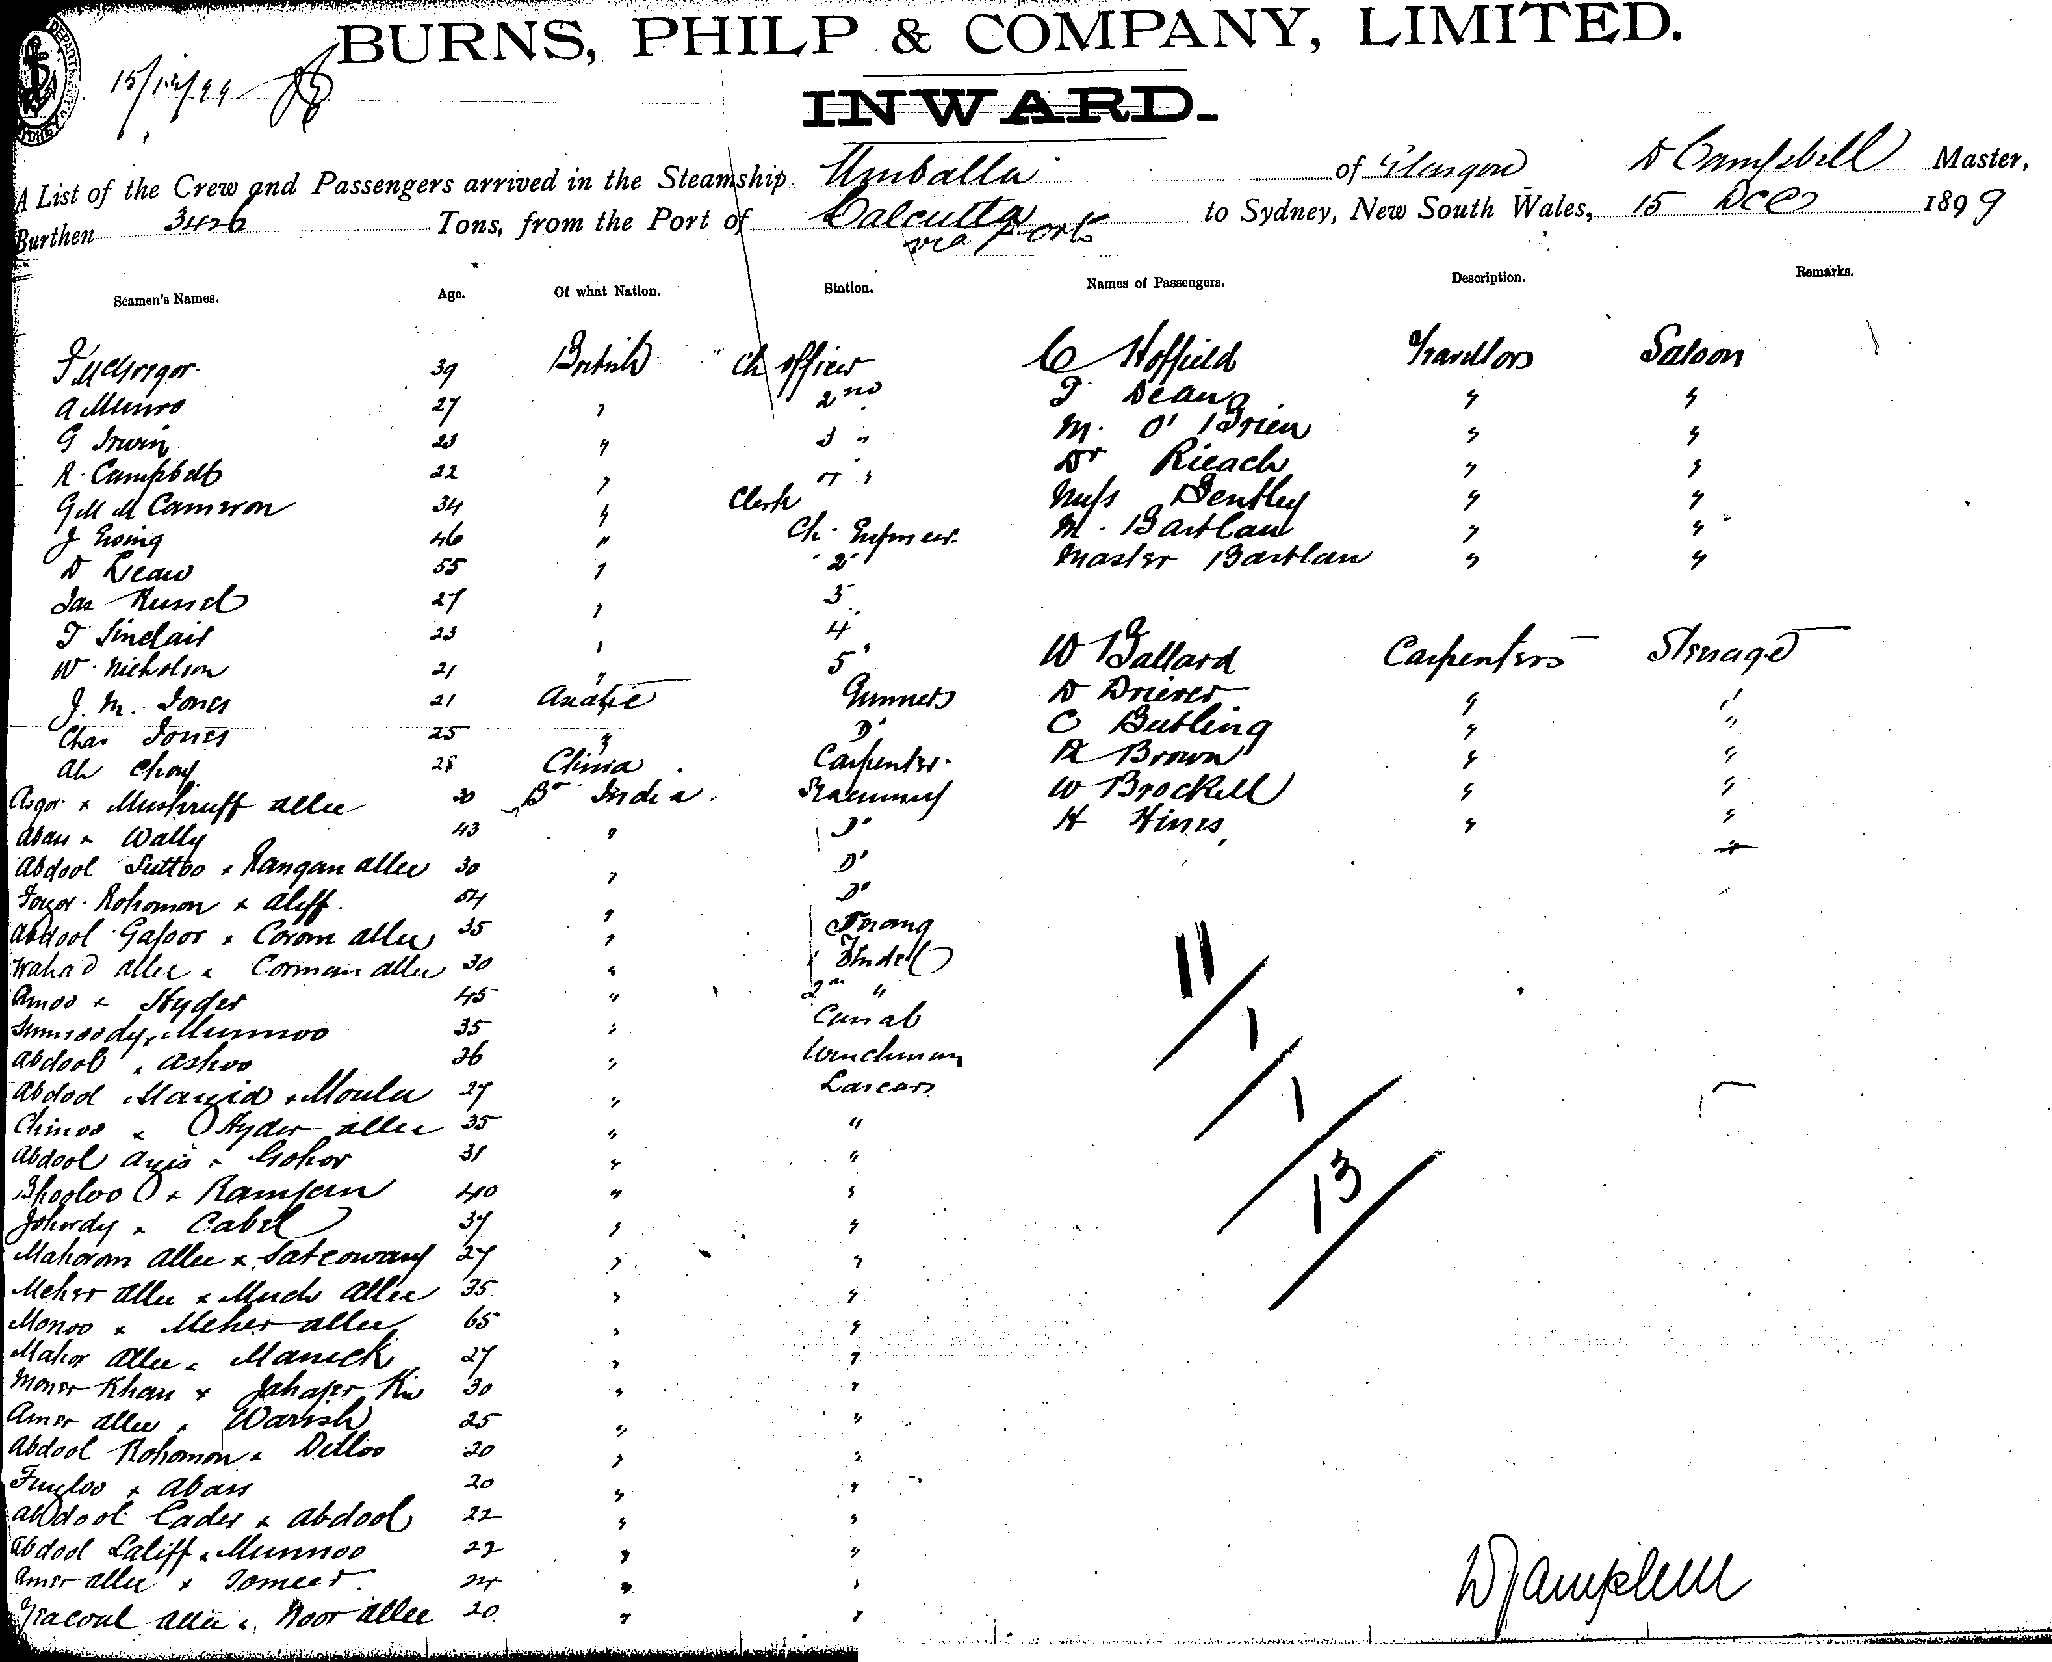 BURNS, PHILP & COMPANY, LIMITED.
15/12/99
INWARD.
A List of the Crew and Passengers arrived in the Steamship Umballa of Glasgow D Campbell Master,
Burthen 3426 Tons, from the Port of Calcutta via Ports to Sydney, New South Wales, 15 Dec 1899
Seamen's Names. Age. Of what Nation. Station. Names of Passengers. Description. Remarks.
J McGregor 39 British Ch officer C Hoffield Travellors Saloon
A Munro 27 " 2nd J Deane " "
G Irwin 23 " 3 " M. O'Brien " "
R. Campbell 22 " " Dr Rieach " "
G M M Cameron 34 " Clerk Miss Bentley " "
J Ewing 46 " Ch. Engineer M. Bartlau " "
D Leaw 55 " 2 Master Bartlau " "
Jas 27 " 3
T Sinclair 23 " 4
W. Nicholson 21 " 5 W Ballard Carpenters Steerage
J. M. Jones 21 Gunners D Driever " "
Chas Jones 25 " Do C Butling " "
Ah Choy 28 China Carpenter R Brown " "
30 Br India W Brockell " "
Abass x Wally 43 " Do H Hines " "
Abdool x Rangan allee 30 " Do
Rohomon x aliff 54 " Do
Abdool Gafoor x Corom allee 35 " Serang
Wahad allee x Corman allee 30 " Tindel
Amoo x Hyder 45 " 2nd "
x Munnoo 35 " Cassab
Abdool x ashoo 26 " Winchman
Abdool x Moula 27 " Lascars
Chinoo x Hyder allee 35 " "
Abdool x Gohor 31 " "
x Ramjan 40 " "
x Cabel 37 " "
Mahoram allee x 27 " "
Meher allee x allee 35 " "
Monoo x Meher allee 65 " "
Mahor allee x Manick 27 " "
Moner Khan x 30 " "
Amer allee x Warish 25 " "
Abdool Rohomon x Dilloo 20 " "
x abass 20 " "
Abdool Cader x abdool 22 " "
Abdool Laliff x Munnoo " "
Amer allee x Jomeer 24 " "
allee x Noor allee 20 " "
11/1/1/13
D Campbell